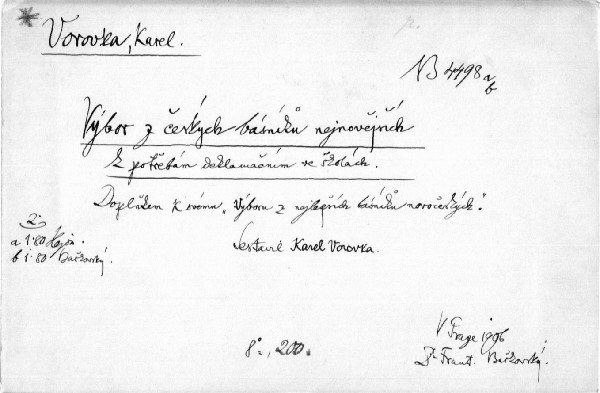 *
Vorovka, Karel.
NB 4498 a/b
Výbor z českých básníků nejnovějších
k potřebám deklamačním ve školách.
Doplňkem k svému „Výboru z nejlepších básníků novočeských".
Sestavil Karel Vorovka.
2.
a 1·80
b 1·80 Bačkovský.
V Praze 1906
Dr Frant. Bačkovský.
8°, 200.